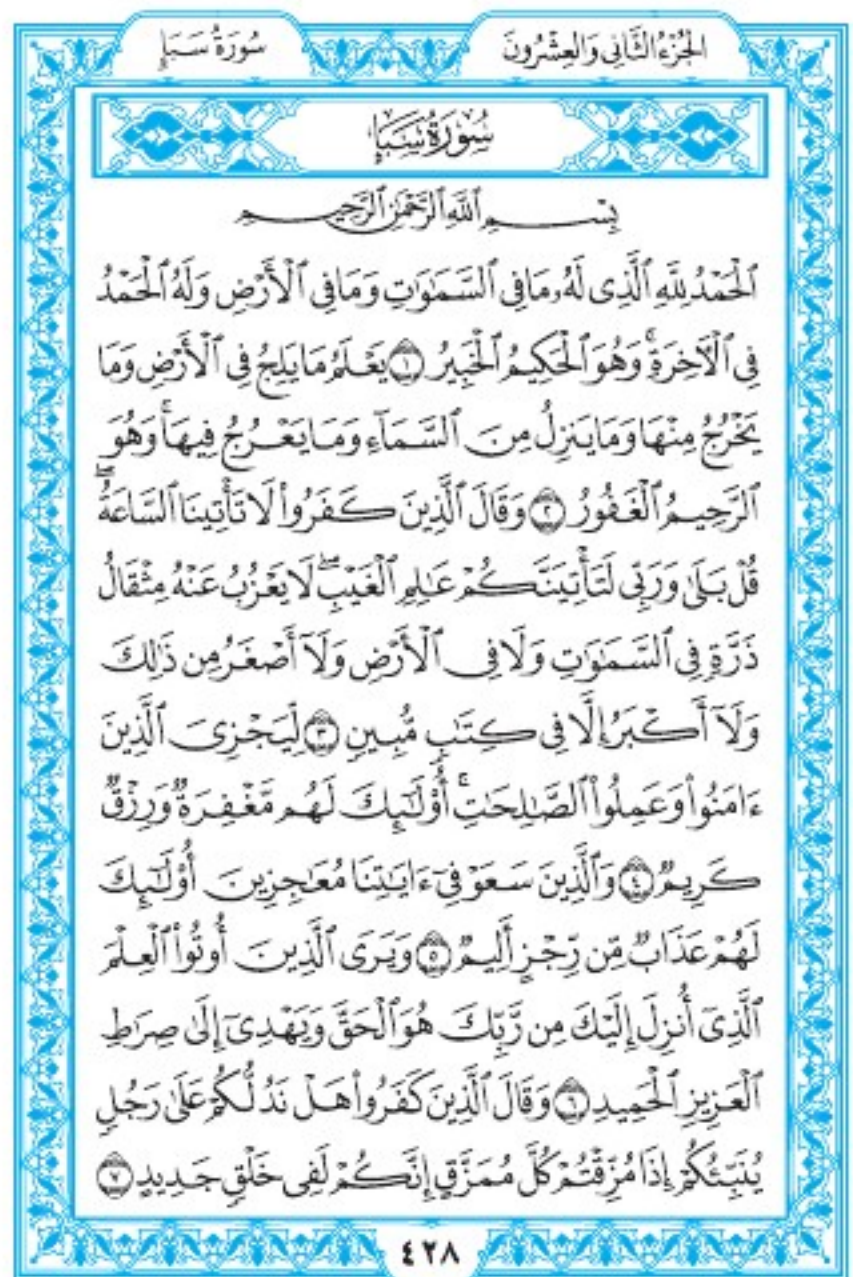 الجُزْءُ الثَّانِي وَالعِشْرُونَ
سُورَةُ سَبَإٍ
سُورَةُ سَبَإٍ
بِسْمِ ٱللَّهِ ٱلرَّحْمَٰنِ ٱلرَّحِيمِ
ٱلْحَمْدُ لِلَّهِ ٱلَّذِى لَهُۥ مَا فِى ٱلسَّمَٰوَٰتِ وَمَا فِى ٱلْأَرْضِ وَلَهُ ٱلْحَمْدُ
فِى ٱلْأَخِرَةِ ۚ وَهُوَ ٱلْحَكِيمُ ٱلْخَبِيرُ ١ يَعْلَمُ مَا يَلِجُ فِى ٱلْأَرْضِ وَمَا
يَخْرُجُ مِنْهَا وَمَا يَنزِلُ مِنَ ٱلسَّمَآءِ وَمَا يَعْرُجُ فِيهَا ۚ وَهُوَ
ٱلرَّحِيمُ ٱلْغَفُورُ ٢ وَقَالَ ٱلَّذِينَ كَفَرُوا۟ لَا تَأْتِينَا ٱلسَّاعَةُ ۖ
قُلْ بَلَىٰ وَرَبِّى لَتَأْتِيَنَّكُمْ عَٰلِمِ ٱلْغَيْبِ ۖ لَا يَعْزُبُ عَنْهُ مِثْقَالُ
ذَرَّةٍ فِى ٱلسَّمَٰوَٰتِ وَلَا فِى ٱلْأَرْضِ وَلَآ أَصْغَرُ مِن ذَٰلِكَ
وَلَآ أَكْبَرُ إِلَّا فِى كِتَٰبٍ مُّبِينٍ ٣ لِّيَجْزِىَ ٱلَّذِينَ
ءَامَنُوا۟ وَعَمِلُوا۟ ٱلصَّٰلِحَٰتِ ۚ أُو۟لَٰٓئِكَ لَهُم مَّغْفِرَةٌ وَرِزْقٌ
كَرِيمٌ ٤ وَٱلَّذِينَ سَعَوْ فِىٓ ءَايَٰتِنَا مُعَٰجِزِينَ أُو۟لَٰٓئِكَ
لَهُمْ عَذَابٌ مِّن رِّجْزٍ أَلِيمٌ ٥ وَيَرَى ٱلَّذِينَ أُوتُوا۟ ٱلْعِلْمَ
ٱلَّذِىٓ أُنزِلَ إِلَيْكَ مِن رَّبِّكَ هُوَ ٱلْحَقَّ وَيَهْدِىٓ إِلَىٰ صِرَٰطِ
ٱلْعَزِيزِ ٱلْحَمِيدِ ٦ وَقَالَ ٱلَّذِينَ كَفَرُوا۟ هَلْ نَدُلُّكُمْ عَلَىٰ رَجُلٍ
يُنَبِّئُكُمْ إِذَا مُزِّقْتُمْ كُلَّ مُمَزَّقٍ إِنَّكُمْ لَفِى خَلْقٍ جَدِيدٍ ٧
٤٢٨